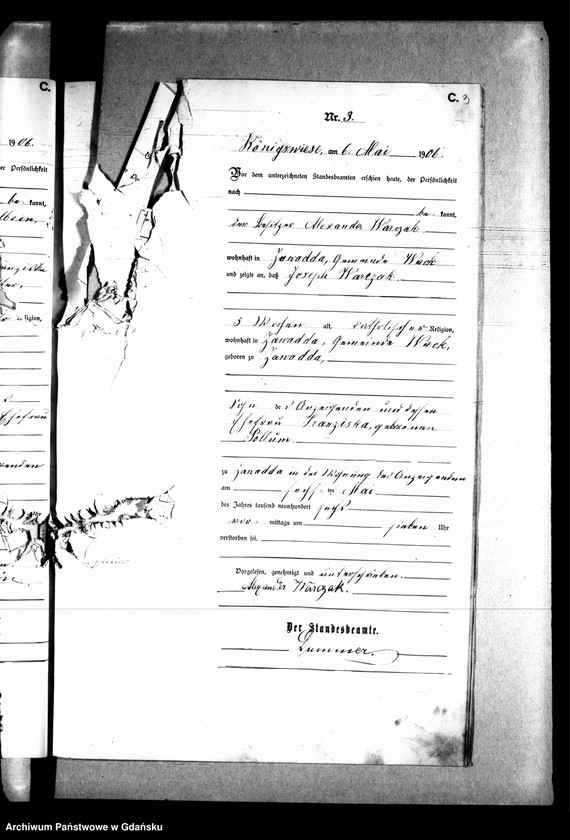 C.
1906.
er Persönlichkeit
be kannt,
ligion,
C. 3
Nr. 3.
Königswiese, am 6. Mai 1906.
Vor dem unterzeichneten Standesbeamten erschien heute, der Persönlichkeit
nach
be kannt,
der Besitzer Alexander Warczak
wohnhaft in Zawadda, Gemeinde Wieck
und zeigte an, daß Joseph Warczak
5 Wochen alt, katholischer Religion,
wohnhaft in Zawadda, Gemeinde Wieck,
geboren zu Zawadda,
Sohn des Anzeigenden und dessen
Ehefrau Franziska, geborenen
zu Zawadda in der Wohnung des Anzeigenden
am sechsten Mai
des Jahres tausend neunhundert sechs
vor mittags um sieben Uhr
verstorben sei.
Vorgelesen, genehmigt und unterschrieben.
Alexander Warczak.
Der Standesbeamte.
Archiwum Państwowe w Gdańsku